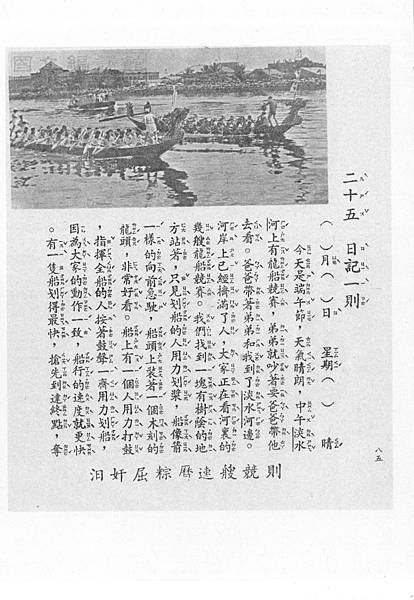 二十五 日記一則
（ ）月（ ）日 星期（ ） 晴
今天是端午節，天氣晴朗，中午淡水
河上有龍船競賽，弟弟就吵著要爸爸帶他
去看。爸爸帶著弟弟和我到了淡水河邊。
河岸上已經擠滿了人，大家正在看河裏的
幾艘龍船競賽。我們找到一塊有樹蔭的地
方站著，只見划船的人用力划槳，船像箭
一樣的向前急駛。船頭上裝著一個木刻的
龍頭，非常好看。船上有一個人用力打鼓
，指揮全船的人按著鼓聲一齊用力划船，
因為大家的動作一致，船行的速度就更快
。有一隻船划得最快，搶先到達終點，奪
則競艘速曆粽屈奸汨
八五